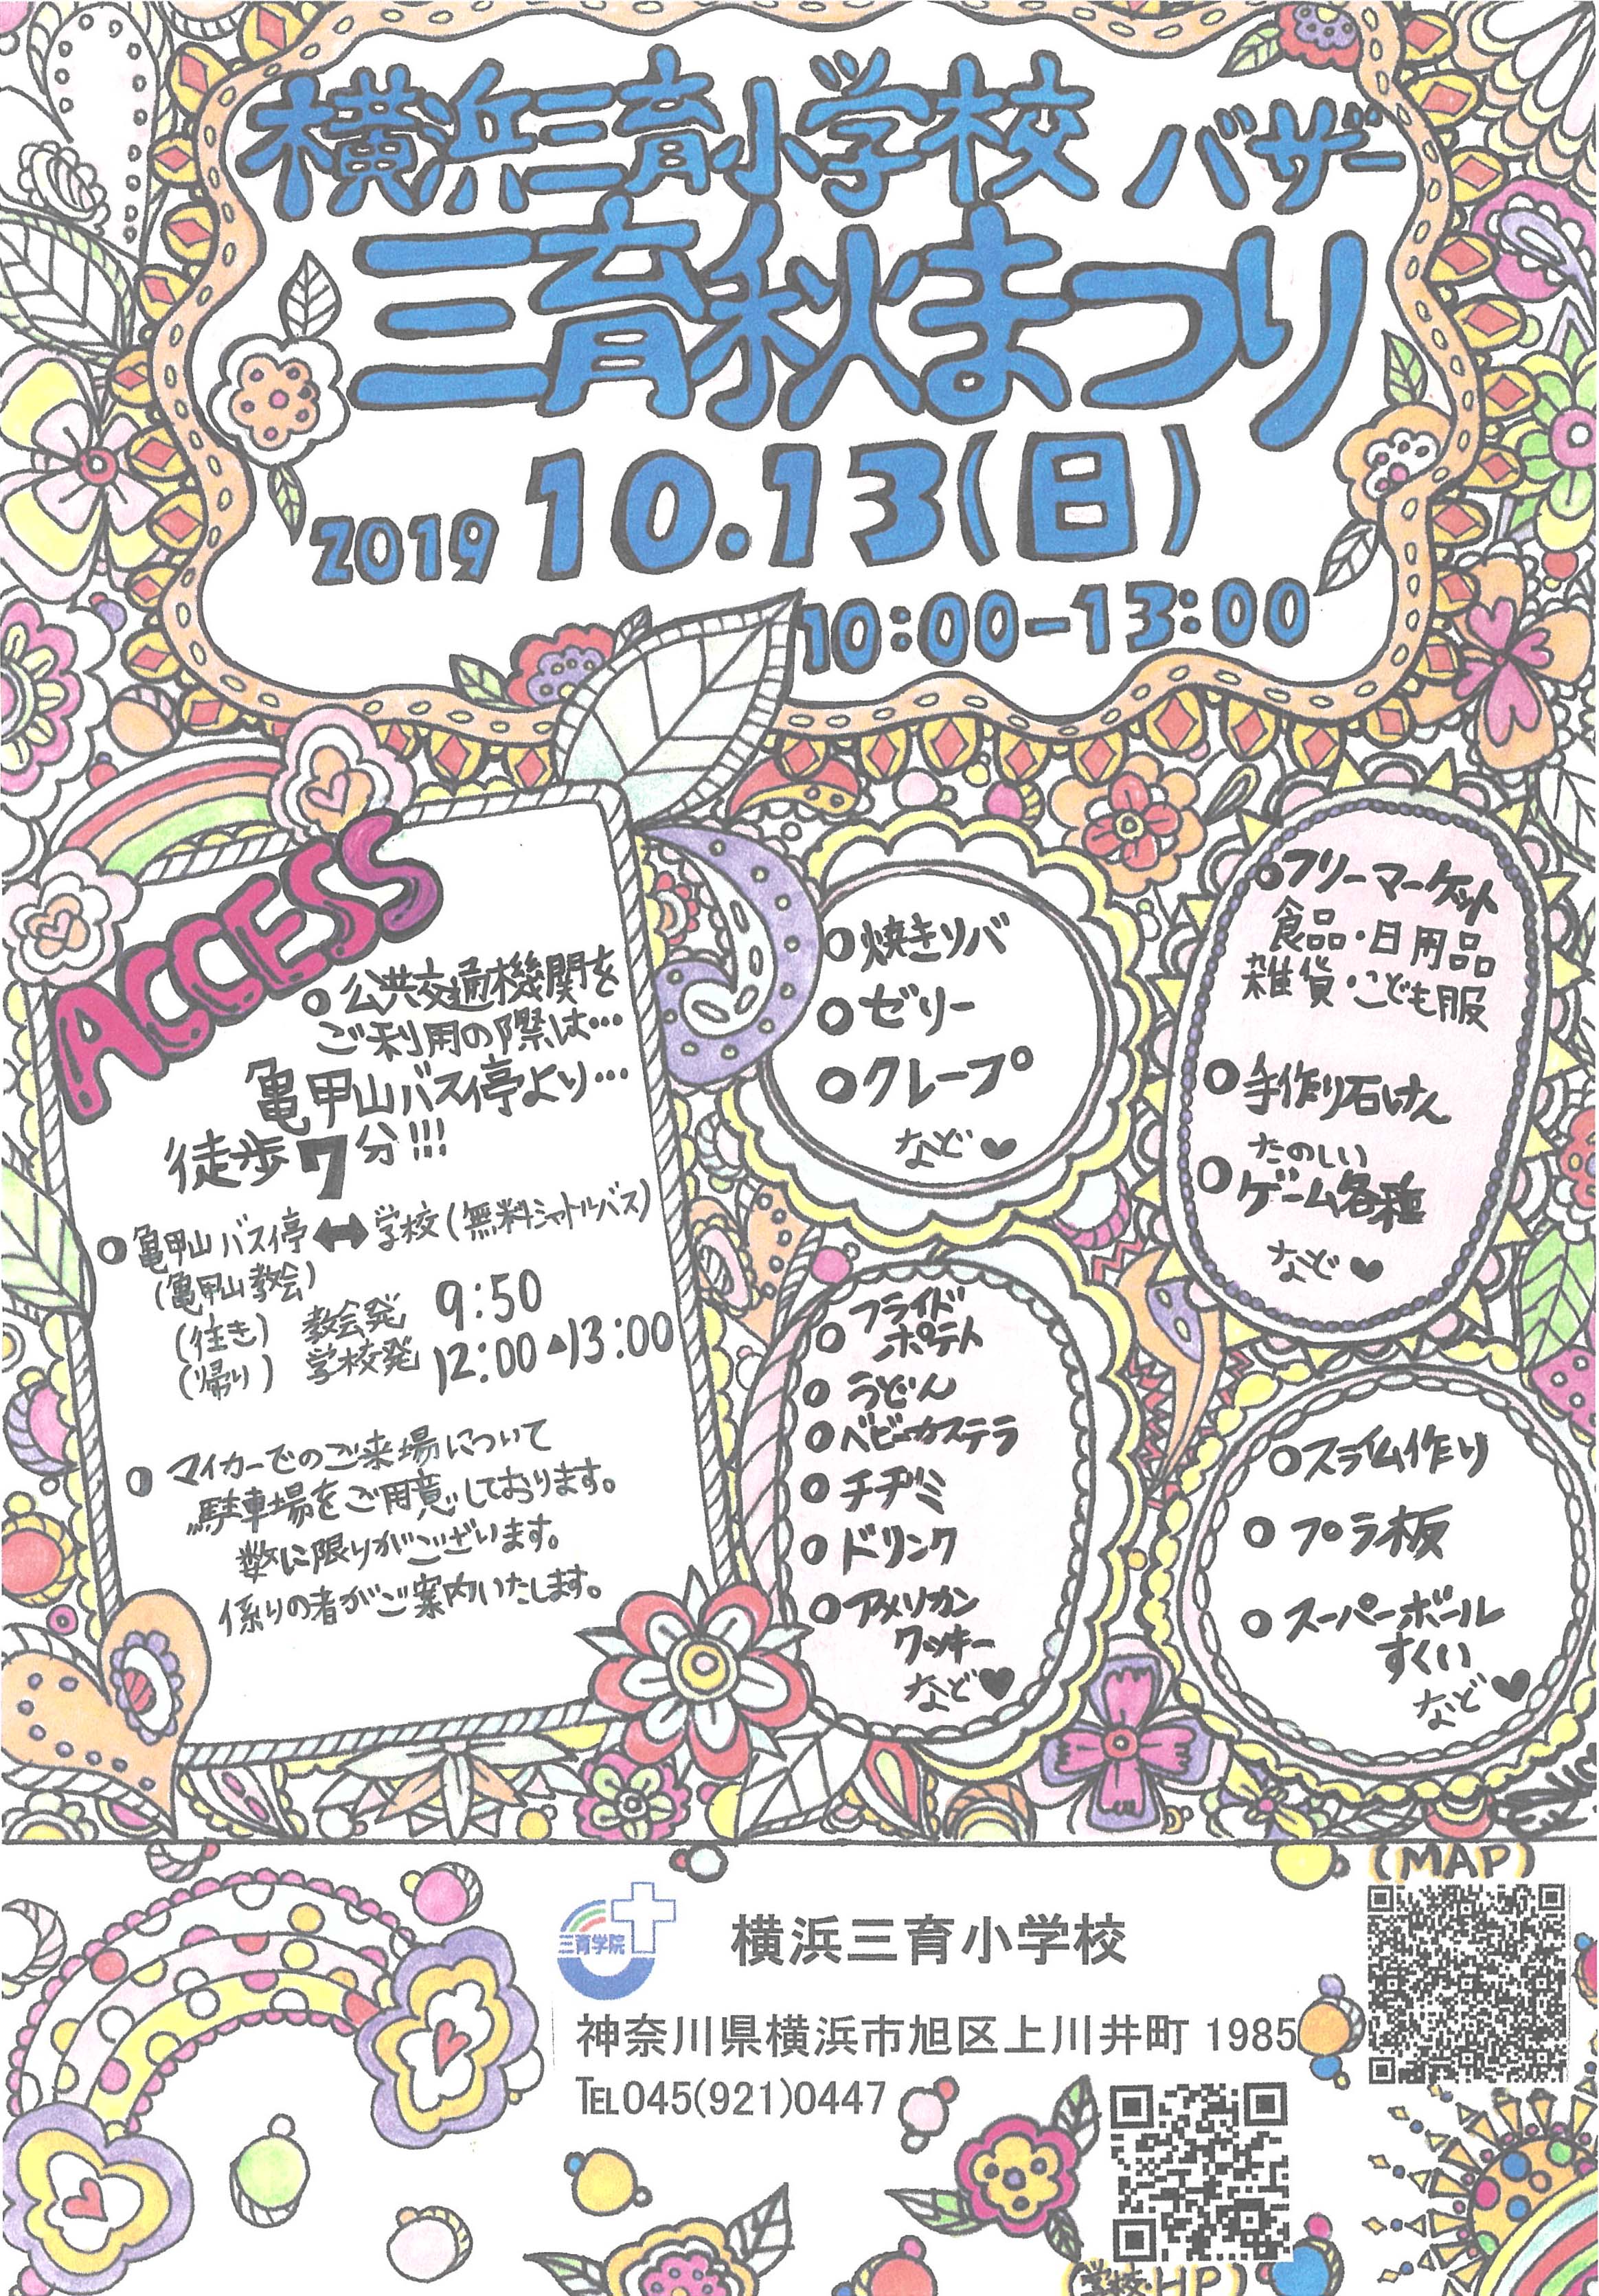 横浜三育小学校 バザー
三育秋まつり
2019 10.13(日)
10:00-13:00
ACCESS
○公共交通機関を
ご利用の際は…
亀甲山バス停より…
徒歩7分!!!
○亀甲山バス停↔学校(無料シャトルバス)
(亀甲山教会)
(往き) 教会発 9:50
(帰り) 学校発 12:00▲13:00
○マイカーでのご来場について
駐車場をご用意しております。
数に限りがございます。
係りの者がご案内いたします。
○焼きソバ
○ゼリー
○クレープ
など♥
○フリーマーケット
食品・日用品
雑貨・こども服
○手作り石けん
たのしい
○ゲーム各種
など♥
フライド
○ポテト
○うどん
○ベビーカステラ
○チヂミ
○ドリンク
○アメリカン
クッキー
など♥
○スライム作り
○プラ板
○スーパーボール
すくい
など♥
(MAP)
三育学院
横浜三育小学校
神奈川県横浜市旭区上川井町 1985
℡045(921)0447
(学校・HP)